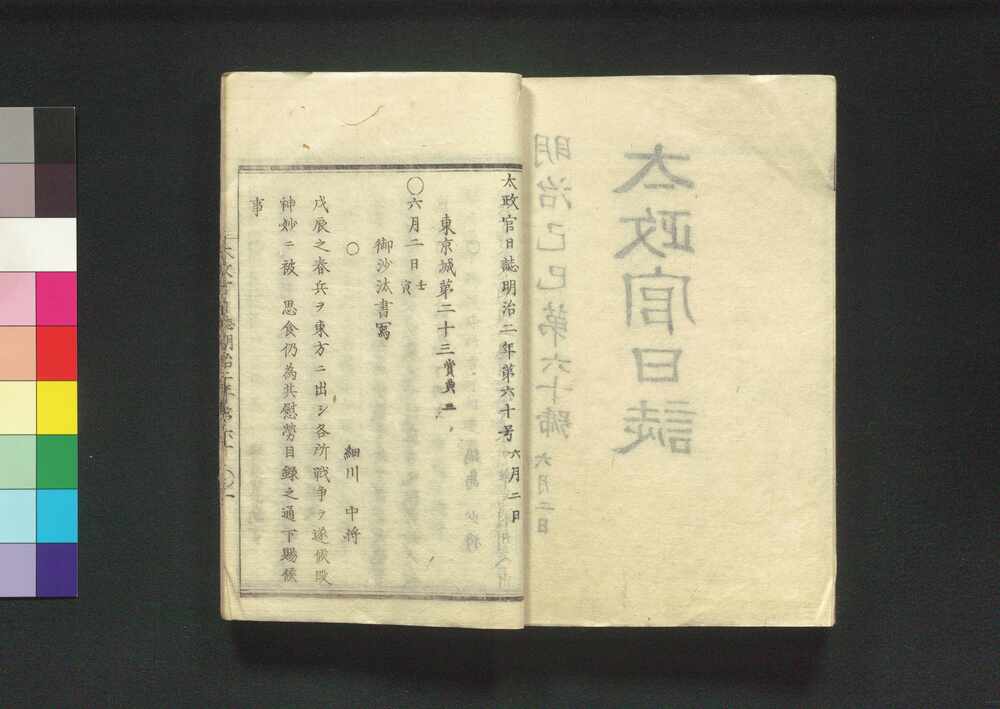 太政官日誌
明治己巳第六十號 六月二日
太政官日誌明治二年第六十号 六月二日
東京城第二十三賞典二
〇六月二日壬寅
御沙汰書写
〇
細川 中将
戊辰之春兵ヲ東方ニ出シ各所戦争ヲ遂候段
神妙ニ被 思食仍為其慰労目録之通下賜候
事